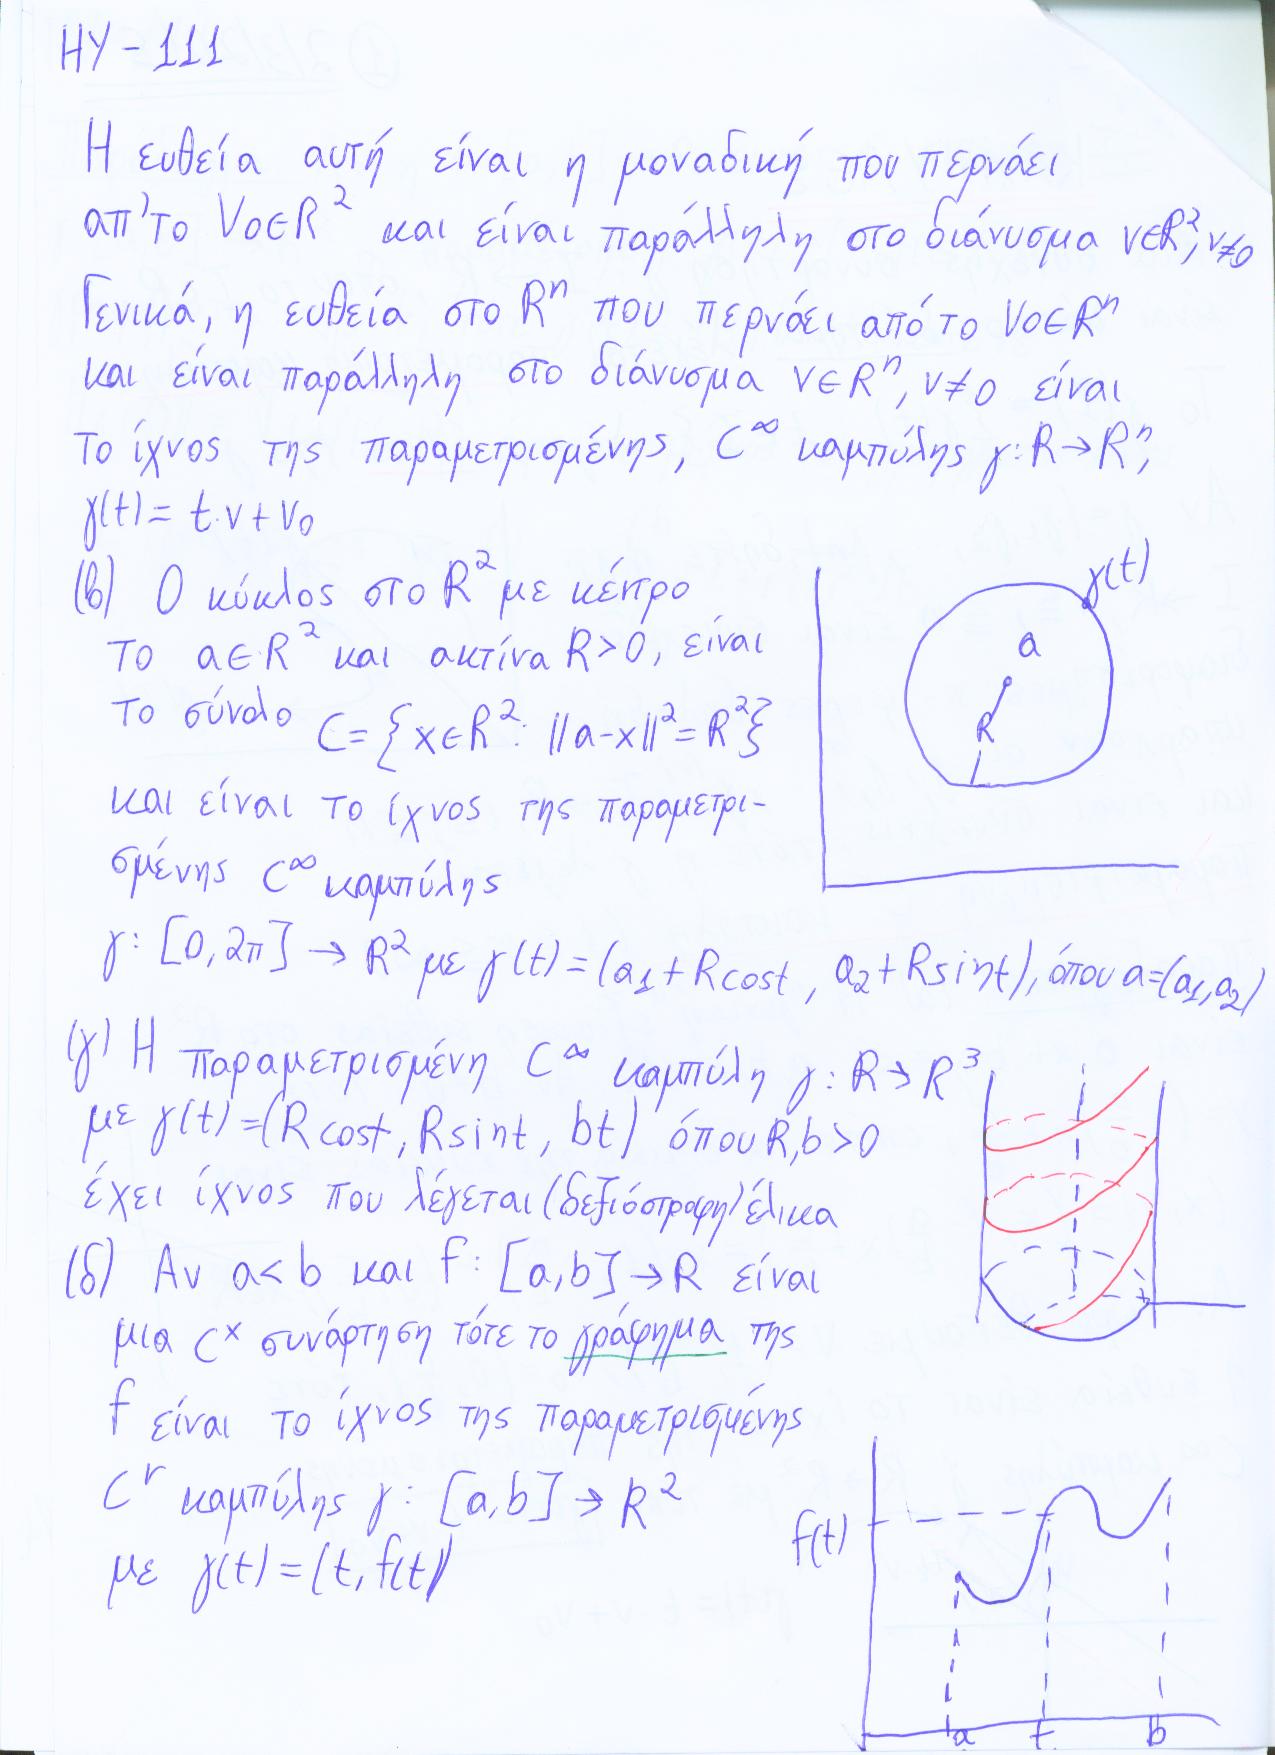 ΗΥ-111
Η ευθεία αυτή είναι η μοναδική που περνάει
απ'το V₀∈R² και είναι παράλληλη στο διάνυσμα v∈R², v≠0
Γενικά, η ευθεία στο Rⁿ που περνάει από το V₀∈Rⁿ
και είναι παράλληλη στο διάνυσμα v∈Rⁿ, v≠0 είναι
το ίχνος της παραμετρισμένης, C∞ καμπύλης γ: R→Rⁿ,
γ(t)= t·v+v₀
(β) Ο κύκλος στο R² με κέντρο
το a∈R² και ακτίνα R>0, είναι
το σύνολο C={x∈R²: ||a-x||²=R²}
και είναι το ίχνος της παραμετρι-
σμένης C∞ καμπύλης
γ: [0,2π]→R² με γ(t)=(a₁+Rcost, a₂+Rsint), όπου a=(a₁,a₂)
γ(t)
a
R
(γ) Η παραμετρισμένη C∞ καμπύλη γ: R→R³
με γ(t)=(Rcost, Rsint, bt) όπου R,b>0
έχει ίχνος που λέγεται (δεξιόστροφη) έλικα
(δ) Αν a<b και f: [a,b]→R είναι
μια Cˣ συνάρτηση τότε το γράφημα της
f είναι το ίχνος της παραμετρισμένης
Cʳ καμπύλης γ: [a,b]→R²
με γ(t)=(t, f(t))
f(t)
a t b